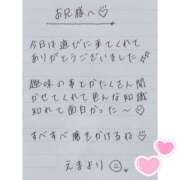 お兄様へ♡
今日は遊びに来てくれて
ありがとうございました
趣味の事とかたくさん聞
かせてくれて色んな知識
知れて面白かった〜♡
すべすべ磨きをかけるね♡
えまより